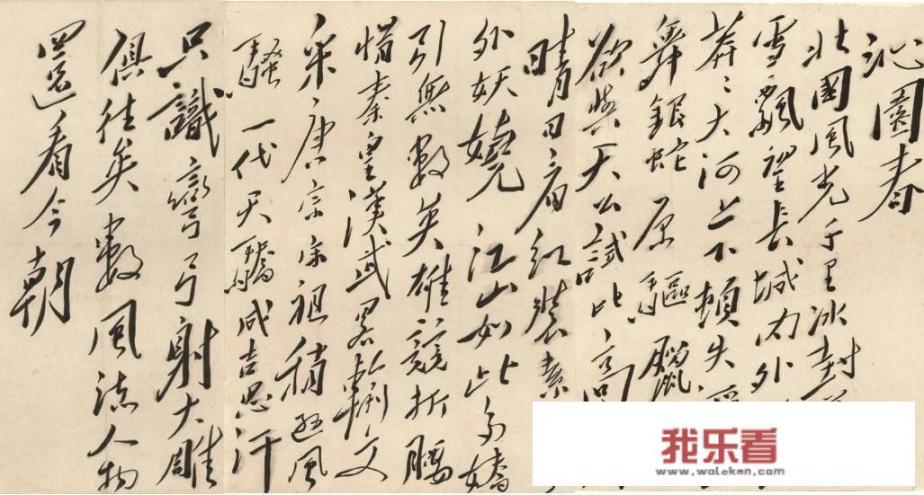 沁園春
北國風光千里冰封
雪飄望長城内外
莽々大河上下頓失
舞銀蛇原驅臘
欲與天公試比高
晴日看紅裝素
外妖嬈江山如此多嬌
引無數英雄競折腰
惜秦皇漢武略輸文
采唐宗宋祖稍遜風
騷一代天驕成吉思汗
只識彎弓射大雕
俱往矣數風流人物
還看今朝
我乐看
www.waleken.com